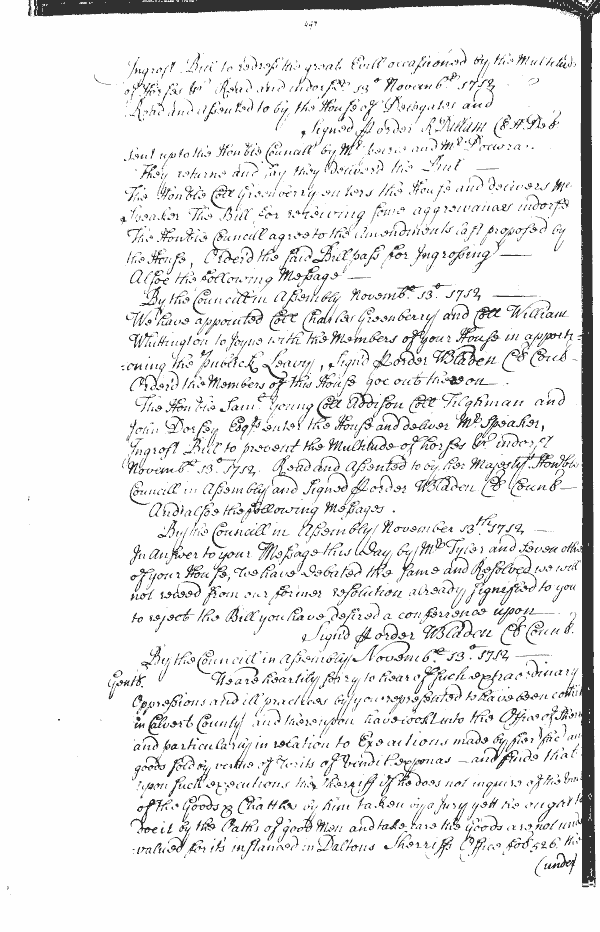 Ingrost Bill to redress the great Evill occasioned by the Multitude
of Horses &c Read and indorsed 13o Novembr 1712
Read and assented to by the House of Delegates and
Signed p order R Dallam Cl H Del
sent up to the Honble Councill by Mr and Mr
They returne and say they deliverd the Bill
The Honble Coll Greenberry enters the House and delivers Mr
Speaker The Bill for reviewing some aggrevances indorsed
The Honble Councill agree to the amendments last proposed by
the House, Orderd the said Bill pass for Ingrossing
Alsoe the following Message
By the Councill in Assembly Novembr 13o 1712
We have appointed Coll Charles Greenberry and Coll William
Whittington to joyne with the Members of your House in apporti-
-oning the Publick Leavy, Signd p order WBladen Cl Coun
Orderd the Members of this House goe out thereon
The Honble Saml Young Coll Addison Coll Tilghman and
John Dorsey Esqrs enter the House and deliver Mr Speaker,
Ingrost Bill to prevent the Multitude of horses &c indorst
Novembr 13o 1712 Read and Assented to by her Majestys Honble
Councill in Assembly and Signed p order WBladen Cl Coun
And alsoe the following Messages.
By the Councill in Assembly November 13th 1712
In Answer to your Message this day by Mr Tyler and seven other
of your House, We have debated the same and Resolved we will
not receed from our former resolution already signified to you
to reject the Bill you have desired a conferrence upon
Signd p order WBladen Cl Coun
By the Councill in Assembly Novembr 13o 1712
Gents. We are heartily sorry to hear of such extraordinary
Oppressions and ill practices by you represented to have been
in Calvert County and thereupon have lookt into the Office of Sherr
and particularly in relation to Executions made by fieri fac and
goods sold by vertue of Writs of Venditi exponas and finde that
upon such executions the Sherriff if he does not inquire of the
of the Goods & Chattles by him taken by a Jury yett he ought to
doe it by the Oaths of good Men and take care the Goods are not und
-valued for its instanced in Daltons Sherriffs Office fol 526 the
(under